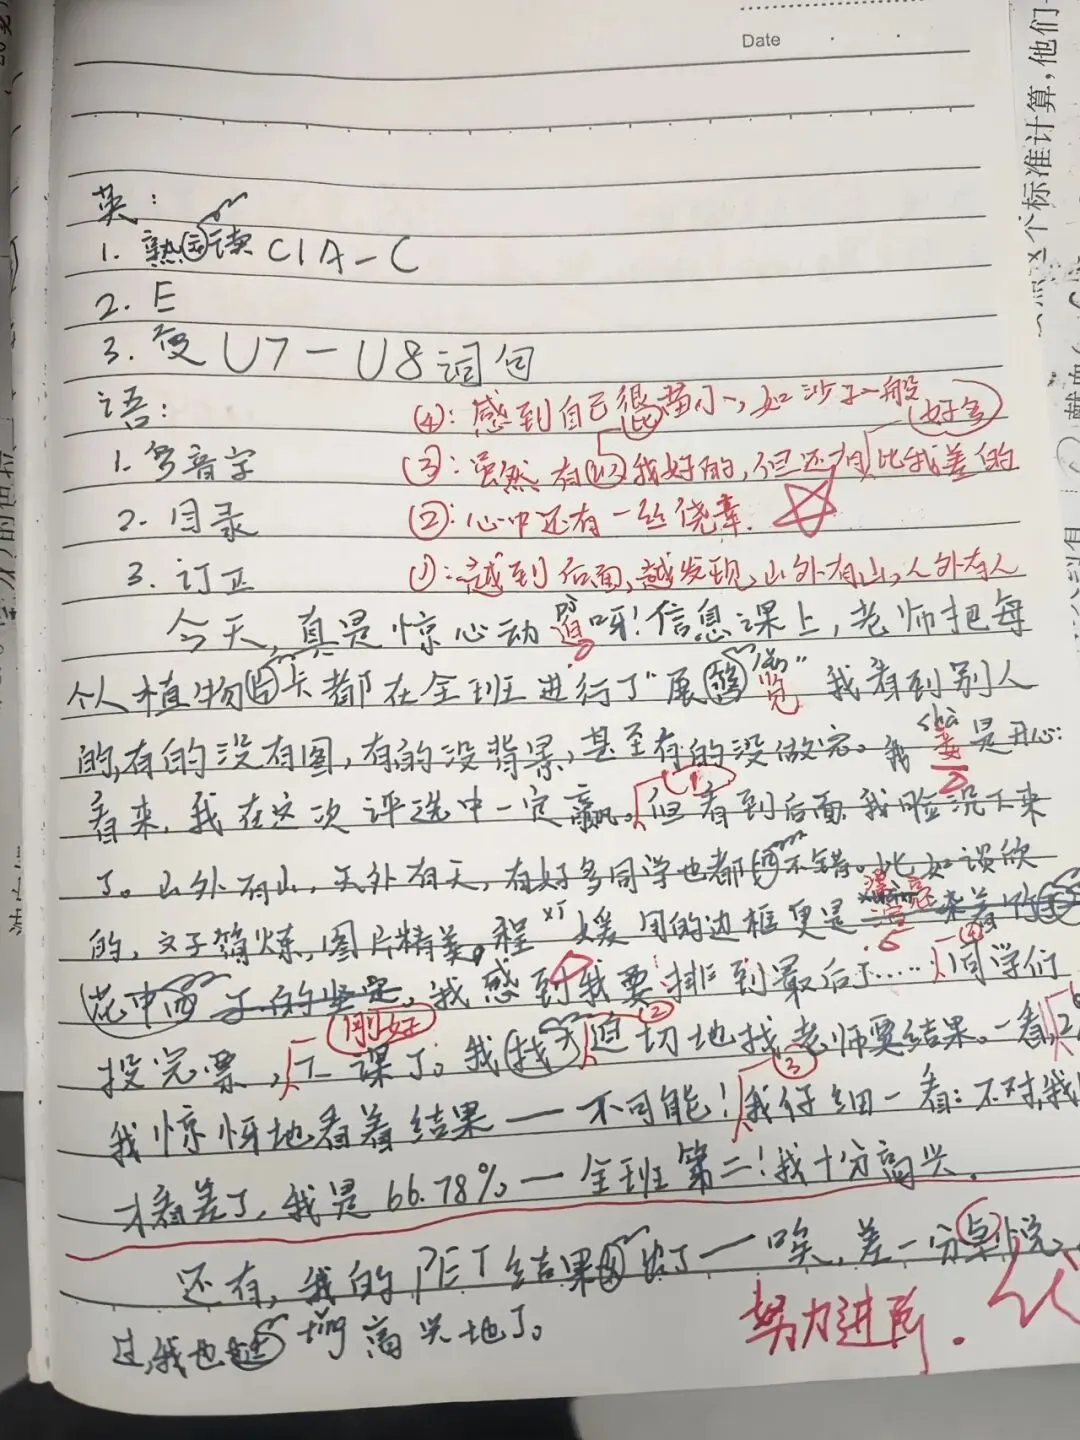 Date
英：
1. 熟读 C1A-C
2. E
3. 复 U7-U8词句
语：
1. 多音字
2. 目录
3. 订正
④：感到自己很渺小，如沙子一般
③：虽然有比我好的，但还有好多比我差的
②：心中还有一丝侥幸.
①：越到后面，越发现，山外有山，人外有人
今天，真是惊心动 呀！信息课上，老师把每
个人植物卡都在全班进行了"展览" 我看到别人
的，有的没有图，有的没背景，甚至有的没做完。我 shà 是开心：
看来，我在这次评选中一定赢。但看到后面我脸沉下来
了。山外有山，天外有天，有好多同学也都 不错。比如谈欣
的，文子简炼，图片精美。程 媛用的边框更是
花中 的坚定，我感到我要排到最后了……同学们
投完票，刚好下课了。我 迫切地找老师要结果。一看，2
我惊讶地看着结果——不可能！我仔细一看：不对，我
才看差了，我是66.78%——全班第二！我十分高兴.
还有，我的PET结果 出了——唉，差一分卓越，
过，我也 tǐng 高兴地了。
努力进阶.
这个标准计算，他们